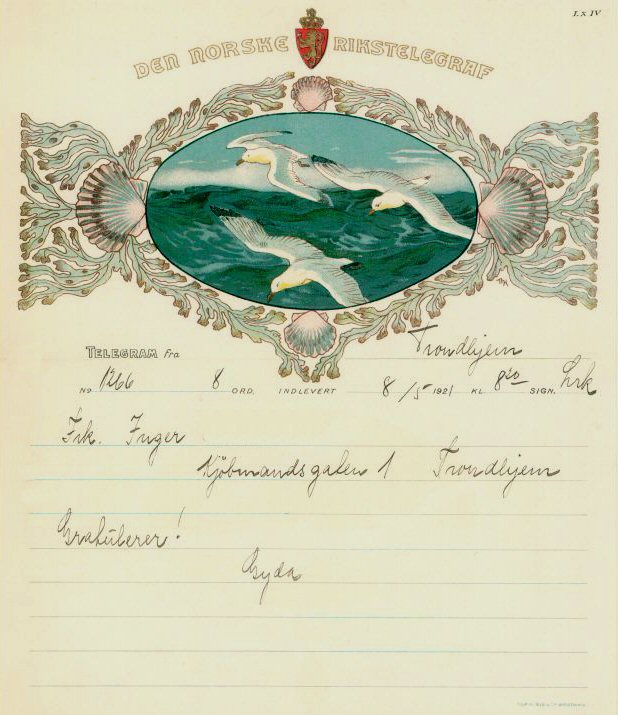 L x IV
DEN NORSKE RIKSTELEGRAF
TELEGRAM fra Trondhjem
No 1266 8 ORD, INDLEVERT 8/5 1921 KL 8 50 SIGN. Lrk
Frk. Inger
Kjöbmandsgaten 1 Trondhjem
Gratulerer!
Gyda